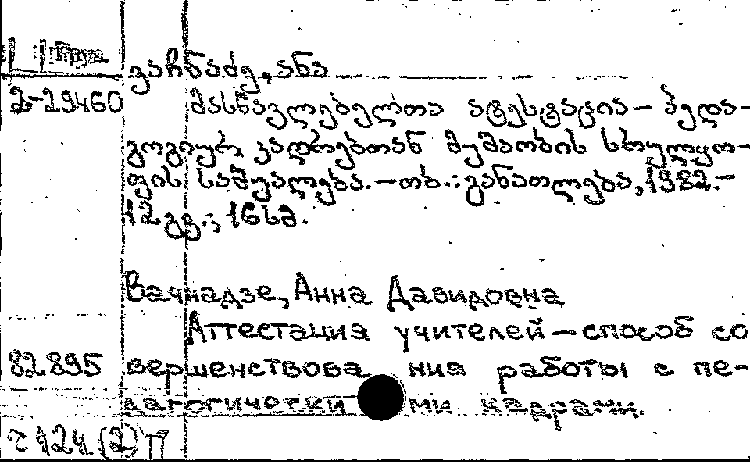 ვაჩნაძე, ანა
2-29460 მასწავლებელთა ატესტაცია — პედა-
გოგიურ კადრებთან მუშაობის სრულყო-
ფის საშუალება. — თბ.: განათლება, 1982. —
12 გვ.; 16 სმ.
Вачнадзе, Анна Давидовна
Аттестация учителей — способ со
82.895 вершенствова ния работы с пе-
дагогически ми кадрами.
124 (2) П